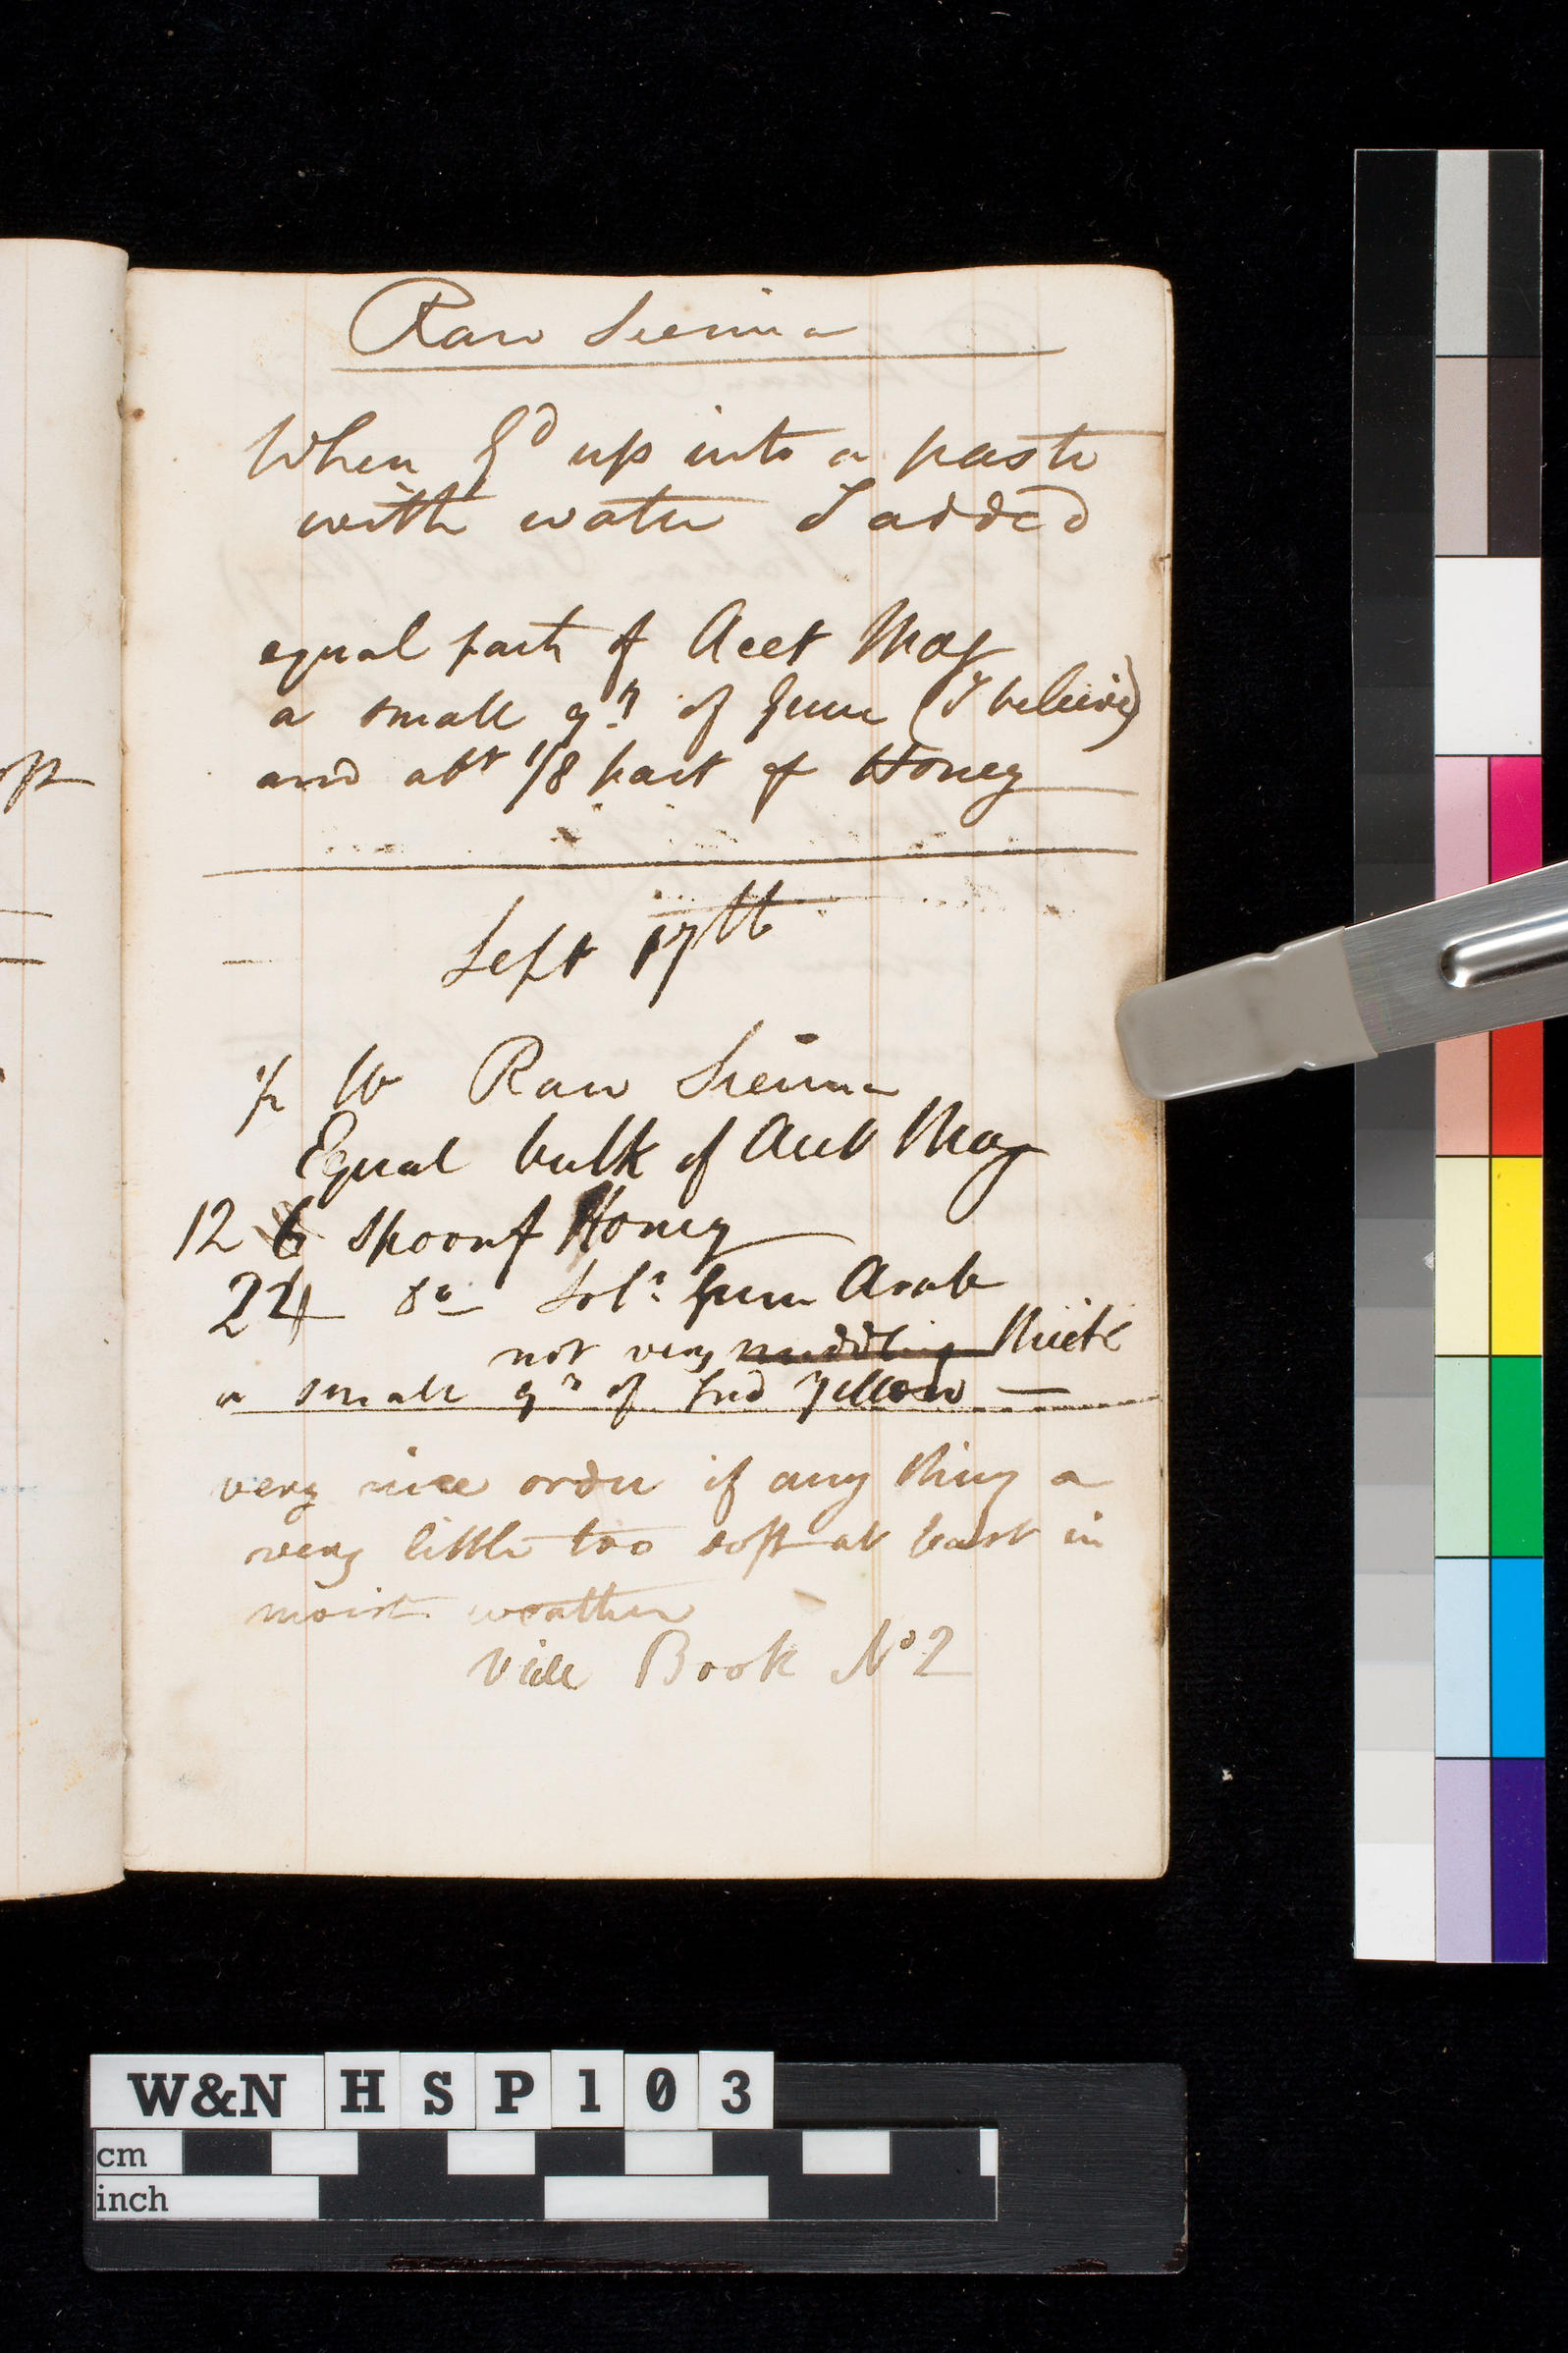 oft
Raw Sienna
When Gd up into a paste
with water I added
equal parts of Acet Mag
a small qn of Gum (I believe)
and abt 1/8 part of Honey
Sept 17th
1/2 lb Raw Sienna
Equal bulk of Acet Mag
12 6 spoonf Honey
24 do Soln Gum Arab
not very middling thick
a small qn of Ind Yellow
very nice order if any thing a
very little too soft at least in
moist weather
Vide Book No 2
W&N HSP103
cm
inch